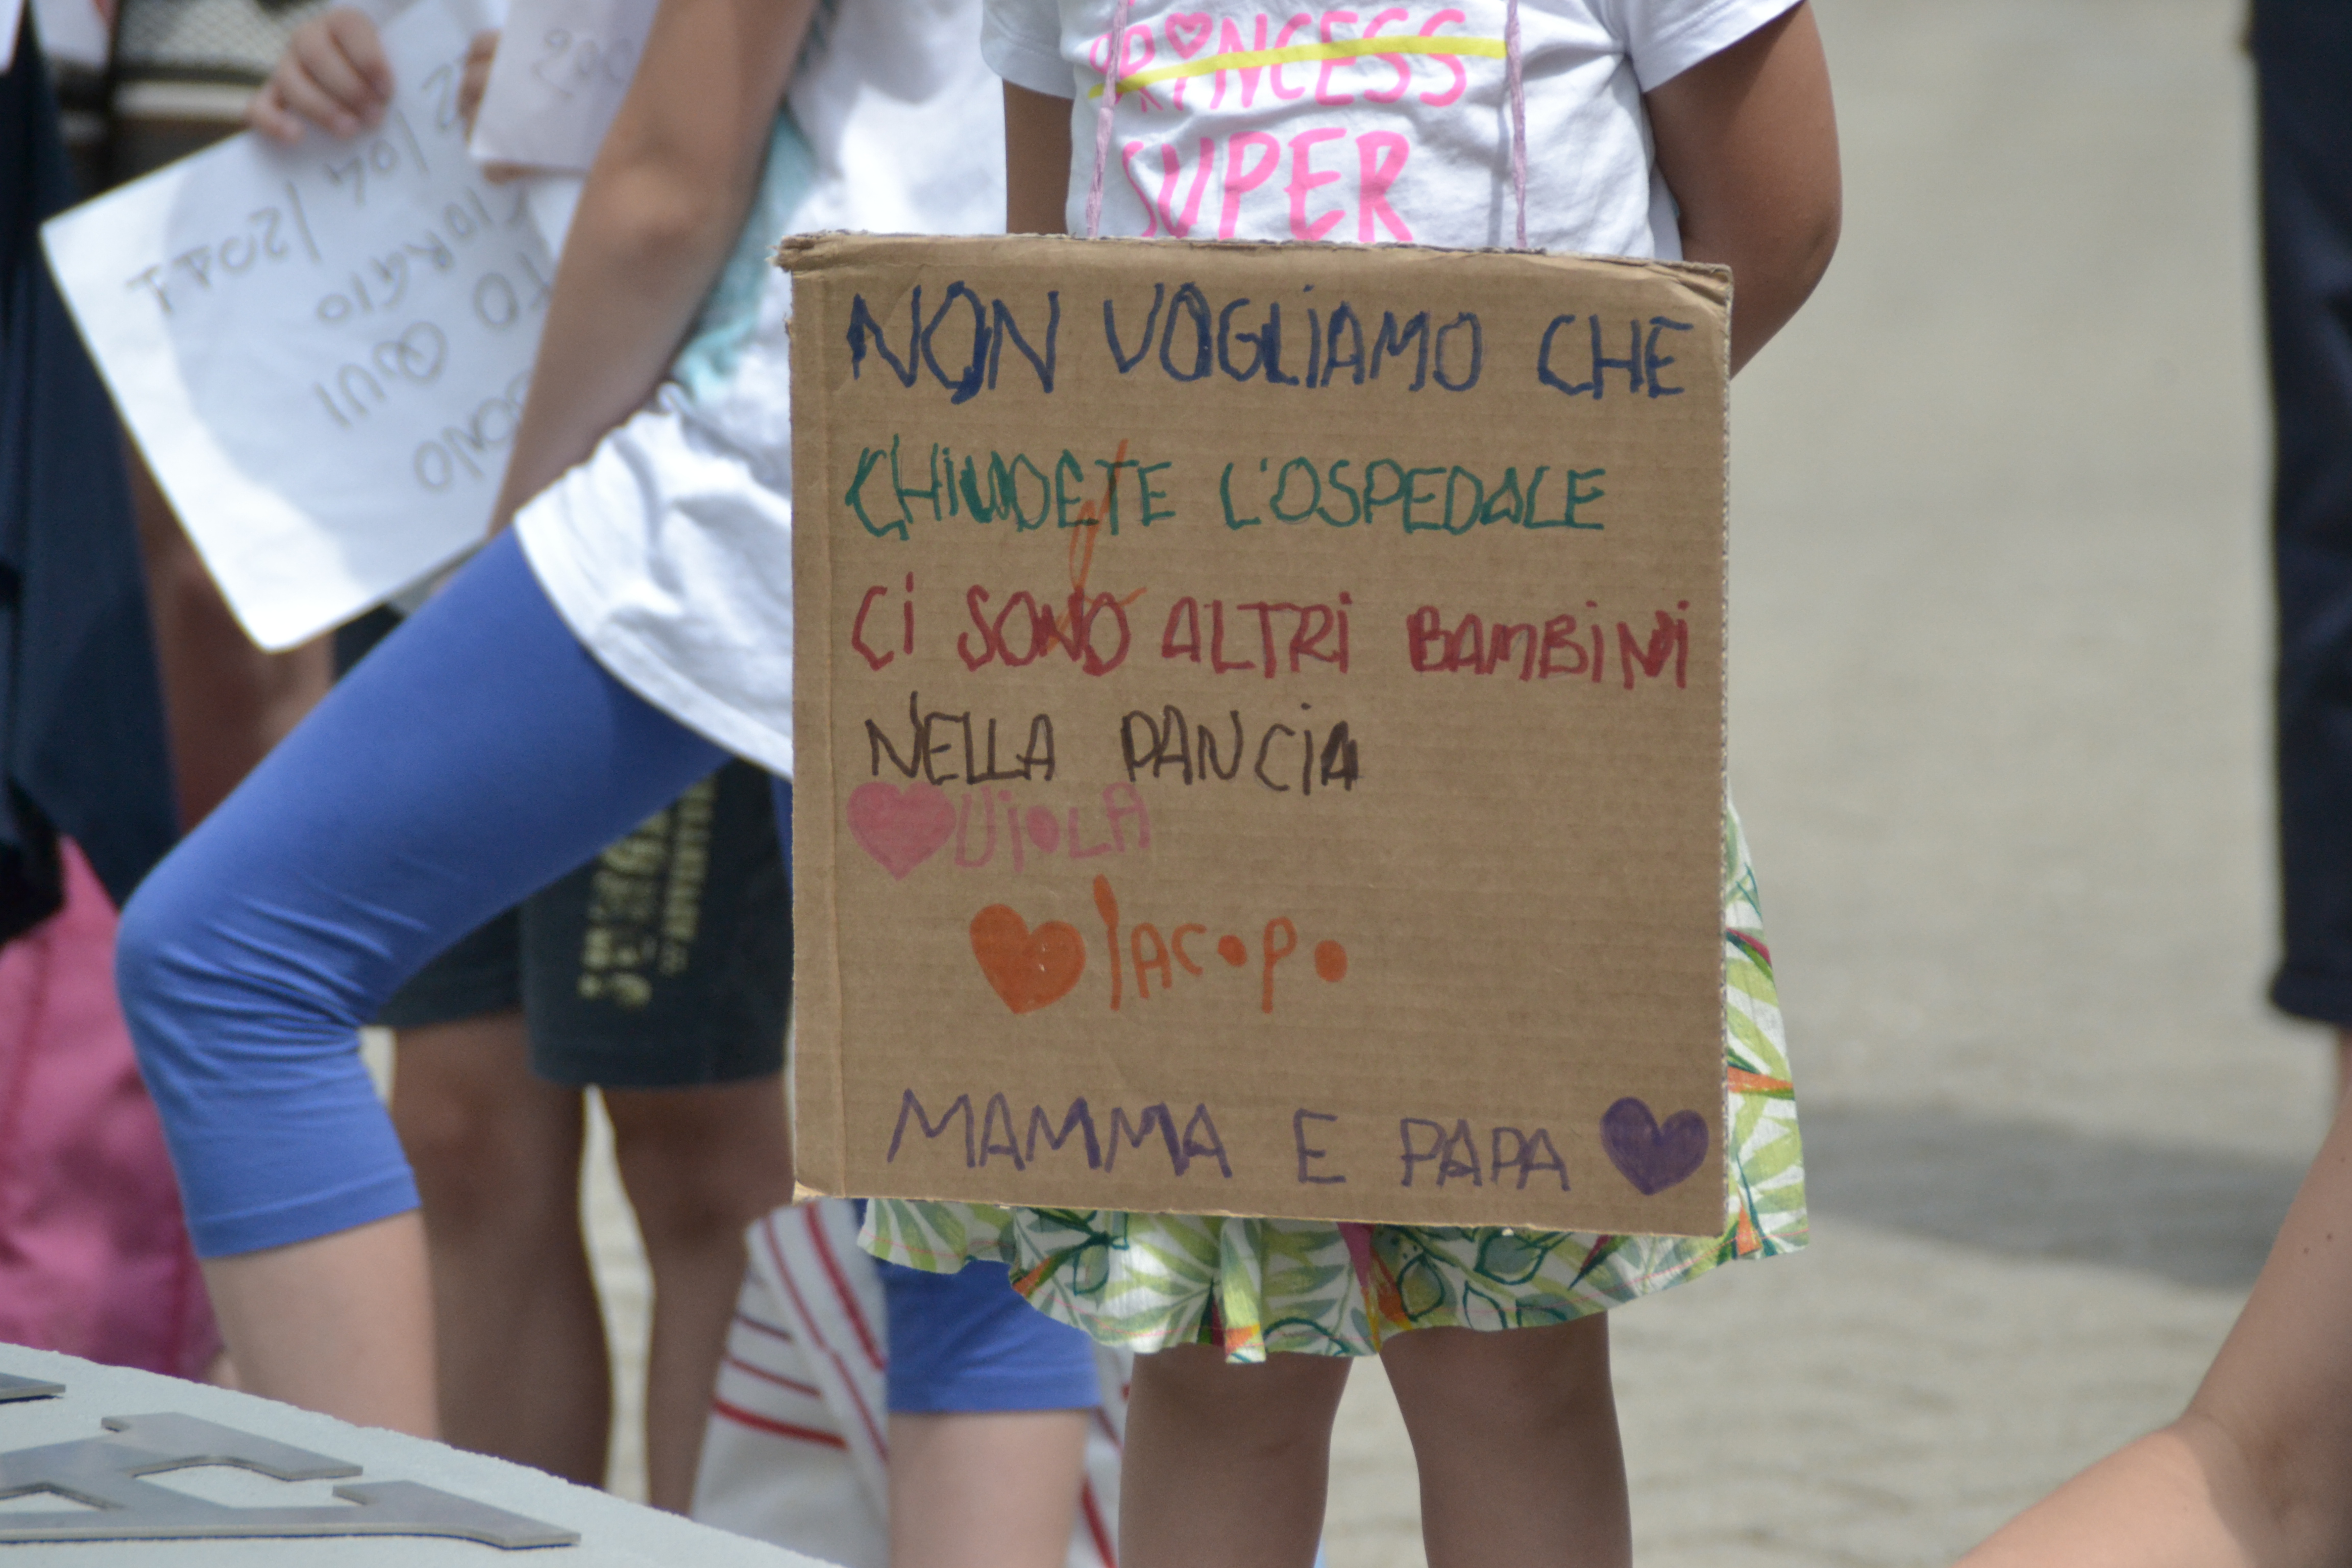 PRINCESS
SUPER
NON VOGLIAMO CHE
CHIUDETE L'OSPEDALE
CI SONO ALTRI BAMBINI
NELLA PANCIA
VIOLA
IACOPO
MAMMA E PAPA
SONO
QUI
/04/2011